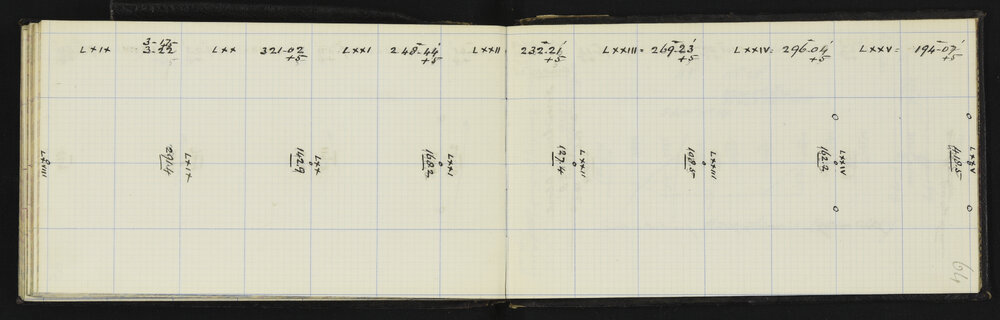 LXIX 3-17'5 LXX 321-02' LXXI 248-44' LXXII 232.21' LXXIII = 269.23' LXXIV = 296.04' LXXV = 194-07'
3-22'5 +5 +5 +5 +5 +5 +5
LXVIII
LXIX
291.4
LXX
142.9
LXXI
168.2
LXXII
127.4
LXXIII
108.5
LXXIV
162.2
LXXV
418.5
64